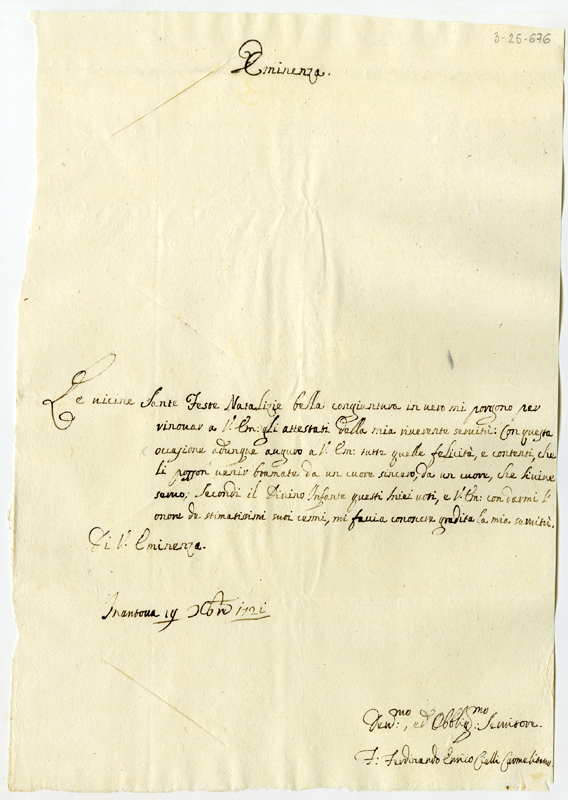 3-25-676
Eminenza.
Le uicine Sante Feste Natalizie bella congiuntura in uero mi porgono per
rinouar a V. Em: gli attestati della mia riuerente seruitù: Con questa
occasione adunque auguro a V. Em: tutte quelle felicità, e contenti, che
li posson uenir bramate da un cuore sincero, da un cuore, che li uiue
seruo; Secondi il Diuino Infante questi miei uoti, e V. Em: con darmi l'
onore de stimatissimi suoi cenni, mi faccia conoscere gradita la mia seruitù.
Di V. Eminenza.
Mantoua 19 Xbre 1721
Deu:mo, ed Obblig:mo Seruitore.
F: Ferdinando Enrico Carmelitano